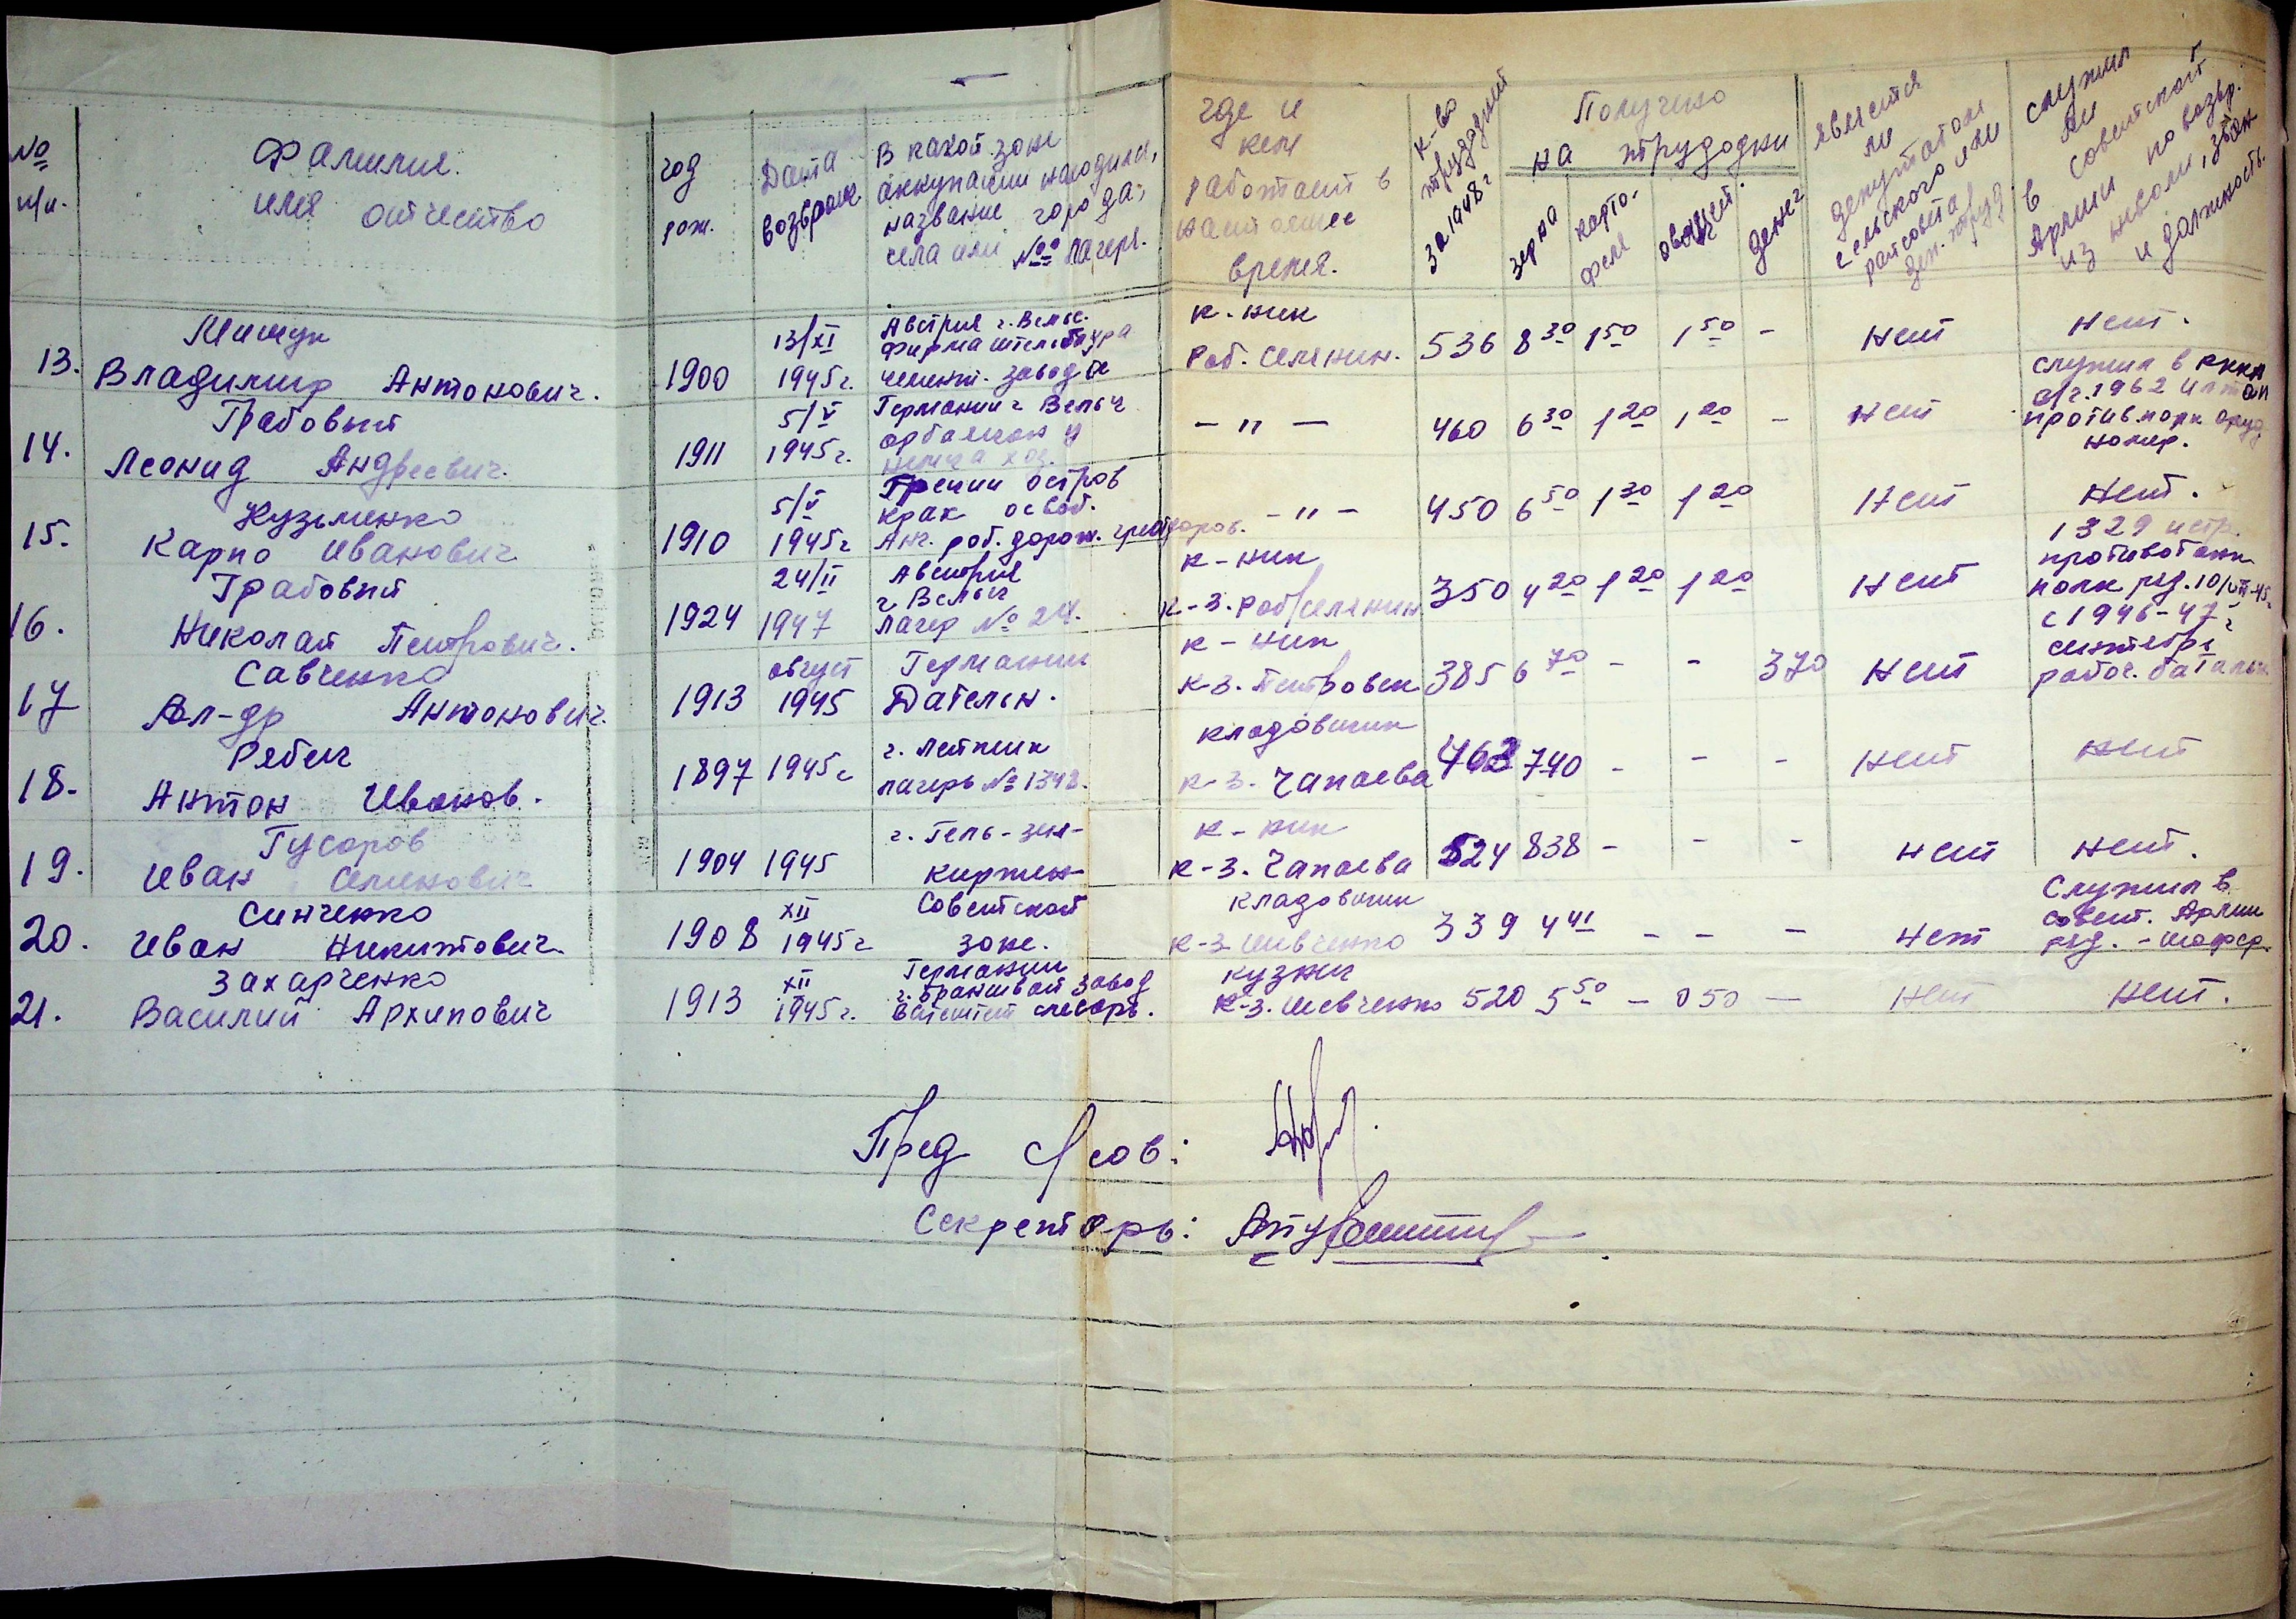 № п/п.
Фамилия. имя отчество
год рож.
Дата возвращ.
В какой зоне аккупации находился, название города, села или №№ лагеря.
где и кем работает в настоящее время.
к-во трудодней за 1948 г
Получено на трудодни
зерна
карто-феля
овощей.
денег
является ли депутатом сельского или райсовета деп. труд
служил ли в советской Армии по возвр. из неволи, зван и должность.
13. Мищук Владимир Антонович. 1900 13/XI 1945 г. Австрия г. Вельс. фирма цемент. завод к-ник Раб. селянин. 536 8 30 1 50 1 50 - нет нет.
14. Грабовый Леонид Андреевич. 1911 5/V 1945 г. Германии г Вельс у немца хоз. - " - 460 6 30 1 20 1 20 - нет служил в РККА 1962 против. полк номер.
15. Кузьменко Карпо Иванович 1910 5/V 1945 г Греции остров крак освоб. Анг. раб. дорож. - " - 450 6 50 1 30 1 20 нет нет.
16. Грабовый Николай Петрович. 1924 24/II 1947 Австрия г Вельс лагер № 24. к-ник к-з. Раб/селянин 350 4 20 1 20 1 20 нет 1329 истр. противотанк полк ряд. 10/VIII-45 с 1946-47 г
17 Савченко Ал-др Антонович. 1913 август 1945 Германии Дательн. к-ник к-з. Петровск 385 6 70 - - 370 нет сентебрь рабоч. батальн.
18. Рябец Антон Иванов. 1897 1945 г г. Лейпциг лагерь № 1348. кладовщик к-з. Чапаева 463 740 - - - нет нет
19. Гусаров Иван Семенович 1904 1945 г. Гель-зен-кирхен к-ник к-з. Чапаева 524 838 - - - нет нет.
20. Синченко Иван Никитович. 1908 XII 1945 г Советской зоне. кладовщик к-з Шевченко 339 4 41 - - - нет Служил в совет. Армии ряд. - шофер.
21. Захарченко Василий Архипович 1913 XII 1945 г. Германии завод слесарь. кузнец к-з. Шевченко 520 5 50 - 0 50 - нет нет.
Пред с/сов:
Секретарь: